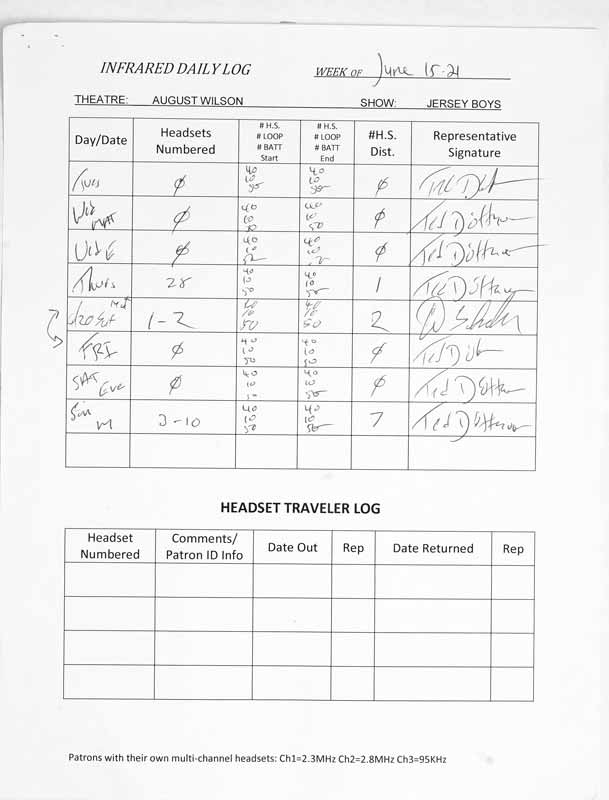 INFRARED DAILY LOG WEEK OF June 15-21
THEATRE: AUGUST WILSON SHOW: JERSEY BOYS
Day/Date Headsets Numbered # H.S. # LOOP # BATT Start # H.S. # LOOP # BATT End #H.S. Dist. Representative Signature
Tues ϕ 40 10 50 40 10 50 ϕ
Wed MAT ϕ 40 10 40 10 50 ϕ Ted Dottner
Wed E ϕ 40 10 40 10 ϕ Ted Dottner
Thurs 28 40 10 50 40 10 50 1 Ted Dottner
6/20 Sat Mat 1-2 40 10 50 40 10 50 2
FRI ϕ 40 10 50 40 10 50 ϕ Ted
SAT Eve ϕ 40 10 40 10 50 ϕ Ted Dottner
Sun M 3-10 40 10 50 40 10 50 7 Ted Dottner
HEADSET TRAVELER LOG
Headset Numbered Comments/ Patron ID Info Date Out Rep Date Returned Rep
Patrons with their own multi-channel headsets: Ch1=2.3MHz Ch2=2.8MHz Ch3=95KHz